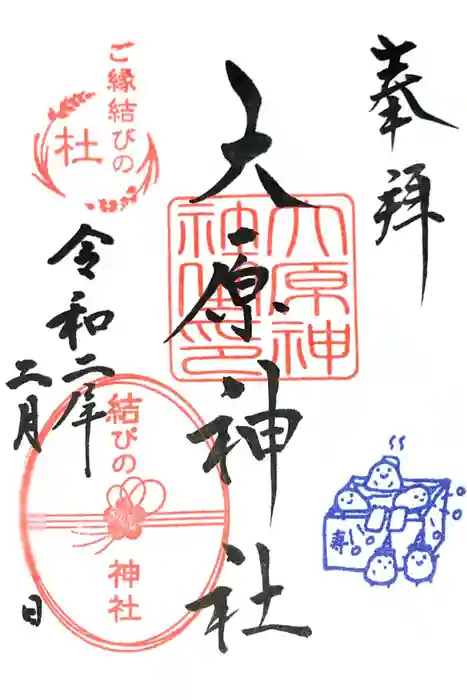 奉拝
大原神社
大原神
ご縁結びの
杜
令和二年
二月 日
結びの
神社